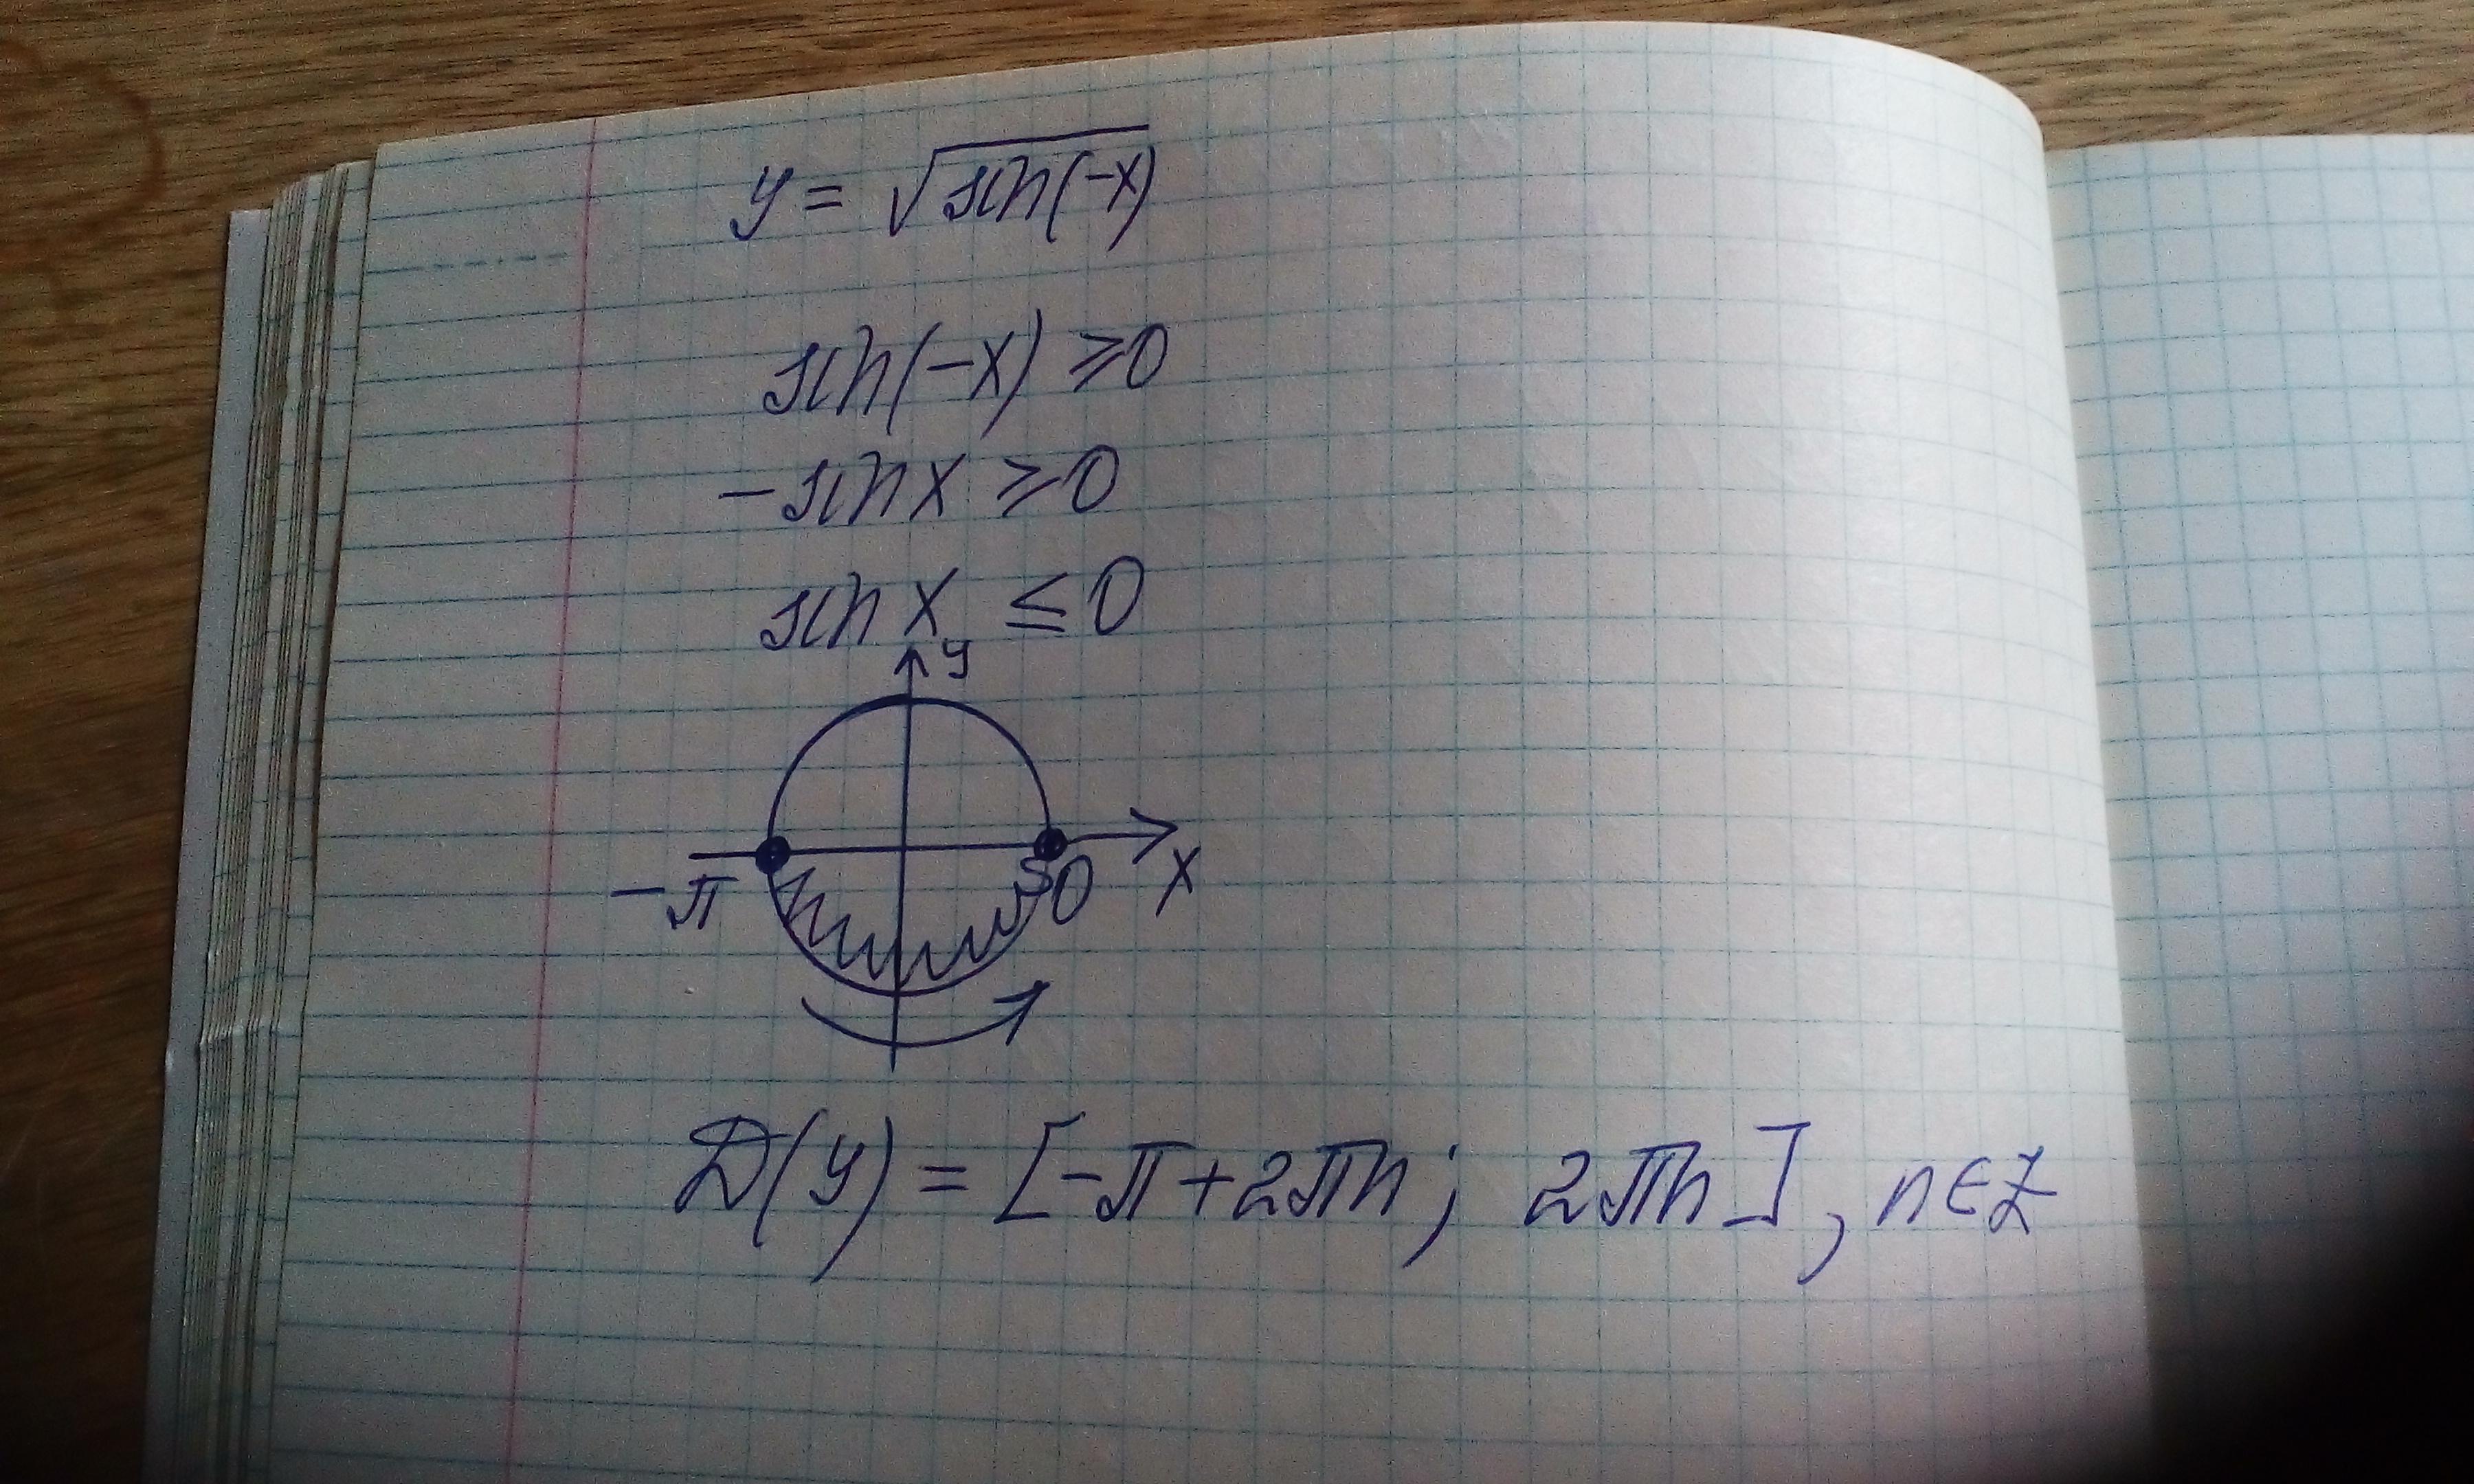 y = √sin(-x)
sin(-x) ⩾ 0
-sin x ⩾ 0
sin x ≤ 0
y
-π 0 x
D(y) = [-π+2πn; 2πn], n∈Z